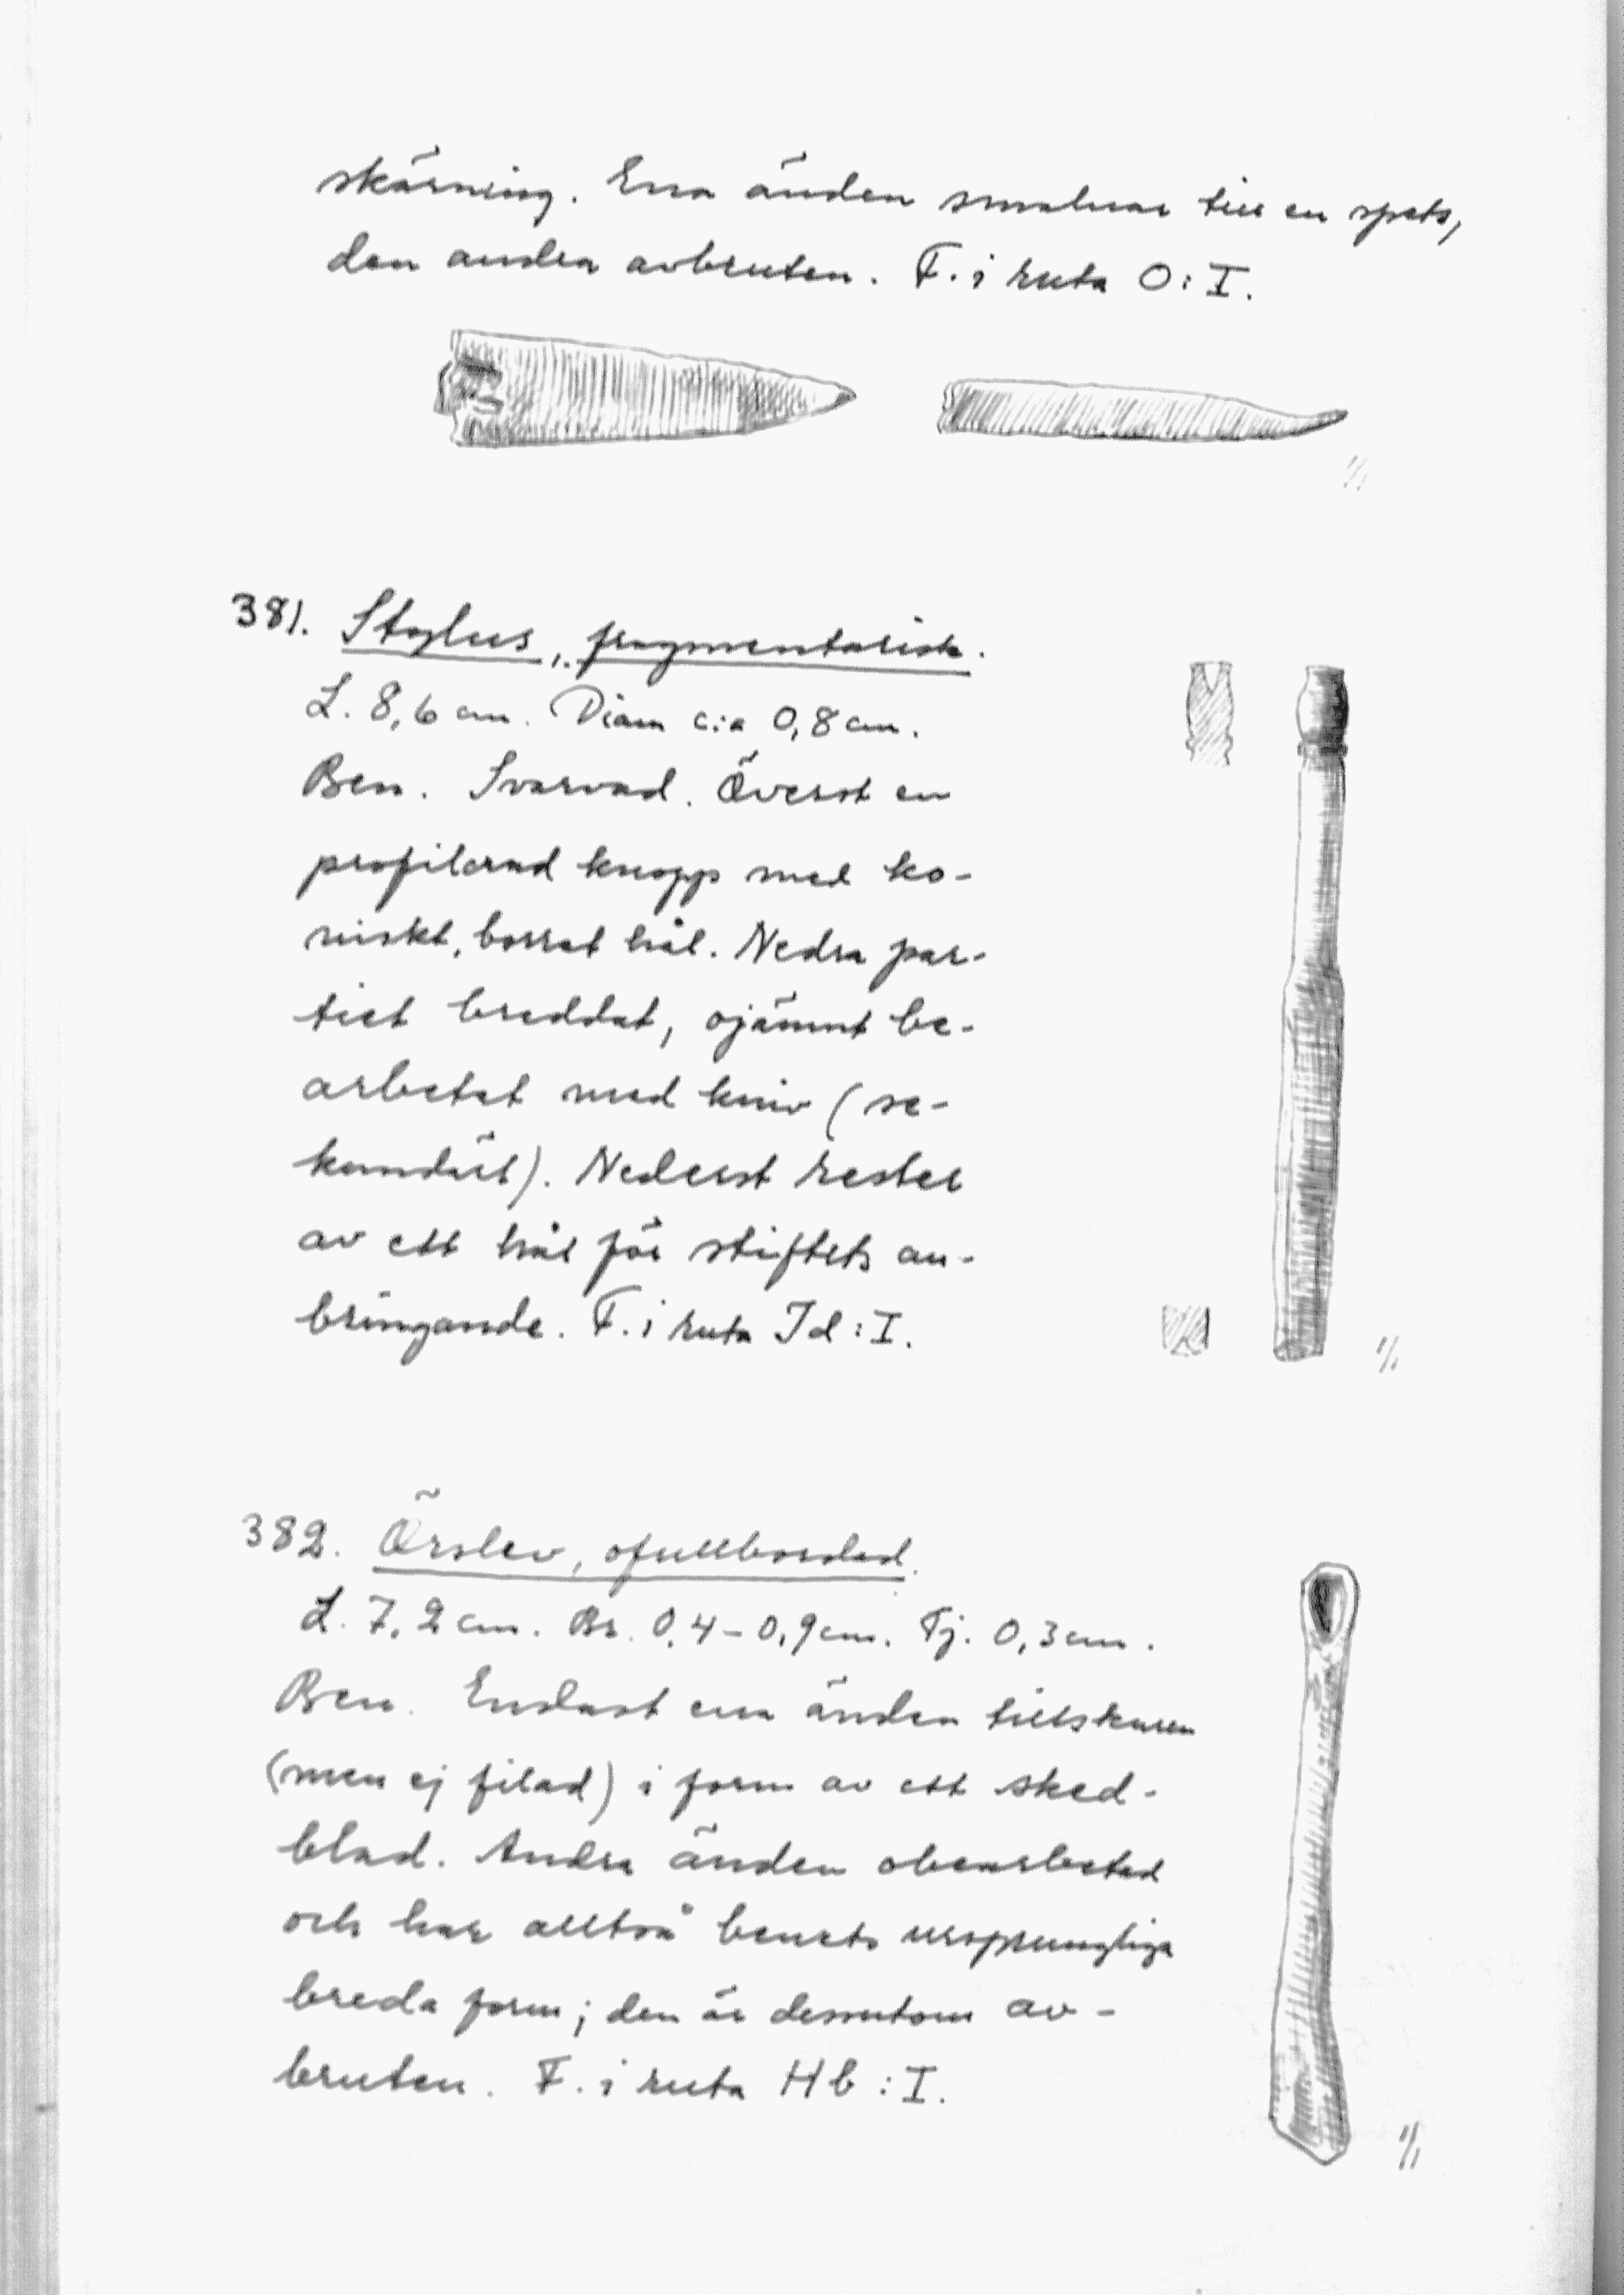 skärning. Ena änden smalnar till en spets,
den andra avbruten. F. i ruta O:I.
1/1
381. Stylus, fragmentarisk.
L. 8,6 cm. Diam c:a 0,8 cm.
Ben. Svarvad. Överst en
profilerad knopp med ko-
niskt, borrat hål. Nedra par-
tiet breddat, ojämnt be-
arbetat med kniv (se-
kundärt). Nederst rester
av ett hål för stiftets an-
bringande. F. i ruta Id:I.
1/1
382. Örslev, ofullbordad.
L. 7,2 cm. Br. 0,4-0,9 cm. Tj. 0,3 cm.
Ben. Endast ena änden tillskuren
(men ej filad) i form av ett sked-
blad. Andra änden obearbetad
och har alltså benets ursprungliga
breda form; den är dessutom av-
bruten. F. i ruta Hb:I.
1/1